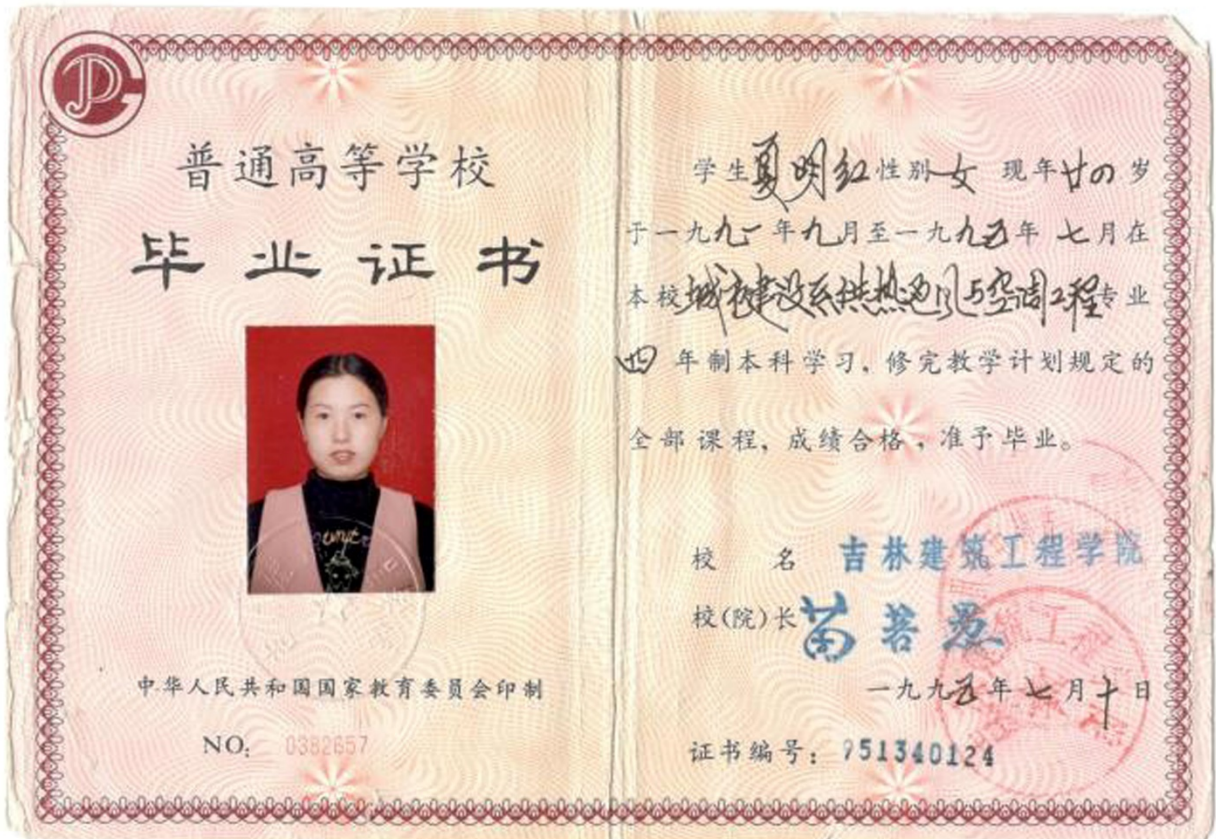 普通高等学校
毕业证书
中华人民共和国国家教育委员会印制
NO: 0382657
学生夏明红性别女 现年廿四岁
于一九九一年九月至一九九五年七月在
本校城市建设系供热通风与空调工程专业
四年制本科学习，修完教学计划规定的
全部课程，成绩合格，准予毕业。
校 名 吉林建筑工程学院
校(院)长 苗若愚
一九九五年七月十日
证书编号: 951340124